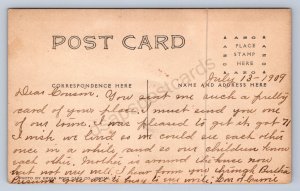 POST CARD
PLACE
STAMP
HERE
CORRESPONDENCE HERE
NAME AND ADDRESS HERE
July 13-1909
Dear Cousin. You sent me such a pretty
card of your place must send you one
of our town. I was pleased to get it
I wish we lived so we could see each other
once in a while, and so our children know
each other. Mother is around the house now
but not very well. I hear from you through Bertha